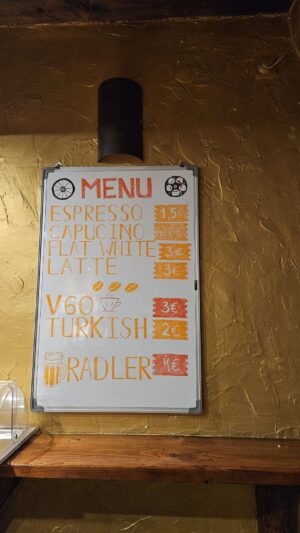 MENU
ESPRESSO 1.5€
CAPUCINO
FLAT WHITE 3€
LATTE 3€
V60 3€
TURKISH 2€
RADLER 4€